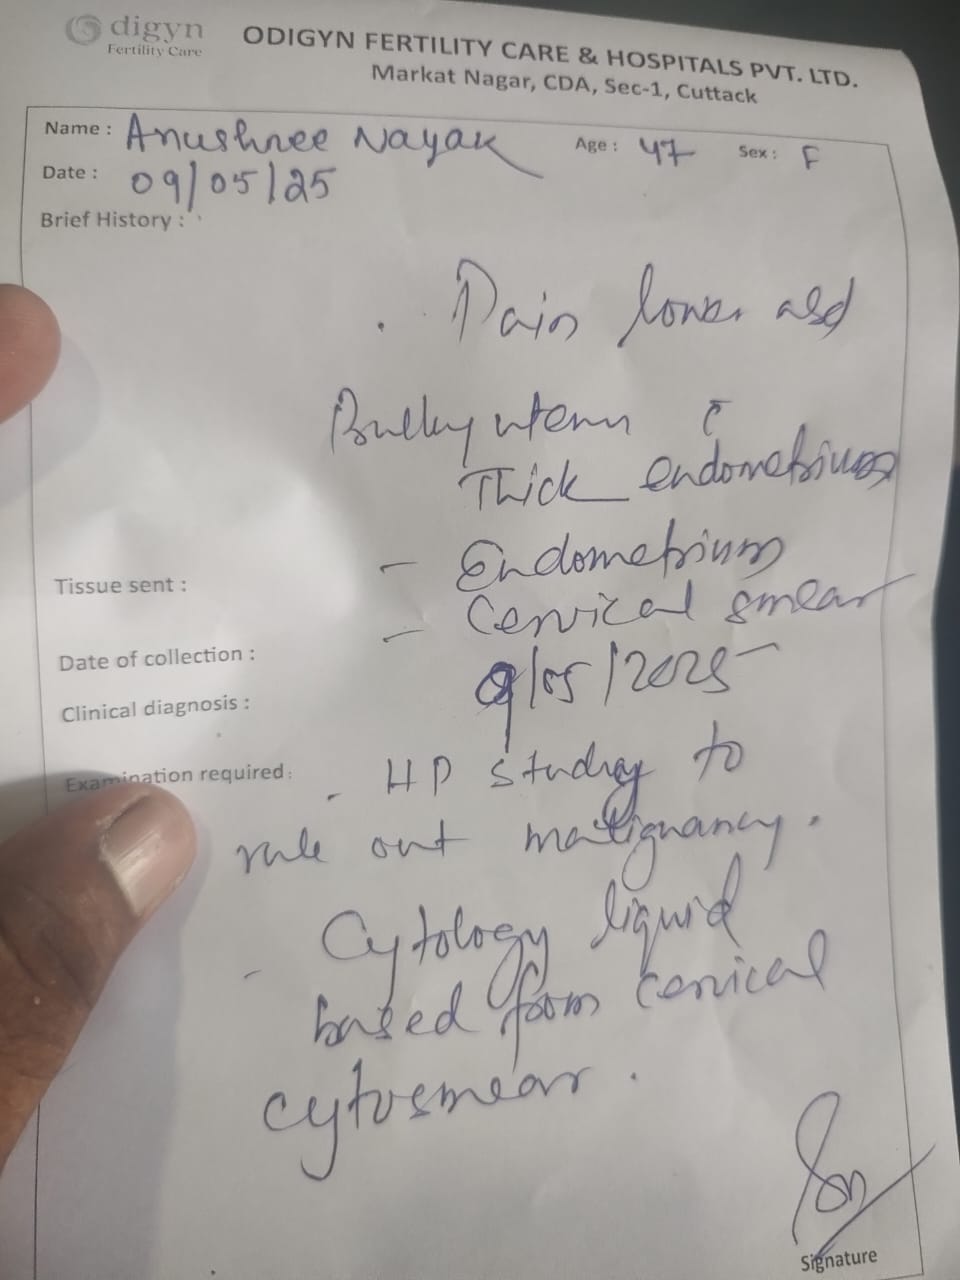 digyn
Fertility Care
ODIGYN FERTILITY CARE & HOSPITALS PVT. LTD.
Markat Nagar, CDA, Sec-1, Cuttack
Name : Anushree Nayak Age : 47 Sex : F
Date : 09/05/25
Brief History :
. Pain lower abd
Bulky uterus c̄
Thick endometrium
Tissue sent : - Endometrium
- Cervical smear
Date of collection : 9/05/2025
Clinical diagnosis :
Examination required : - HP study to
rule out malignancy.
- Cytology liquid
based from cervical
cytosmear.
Signature